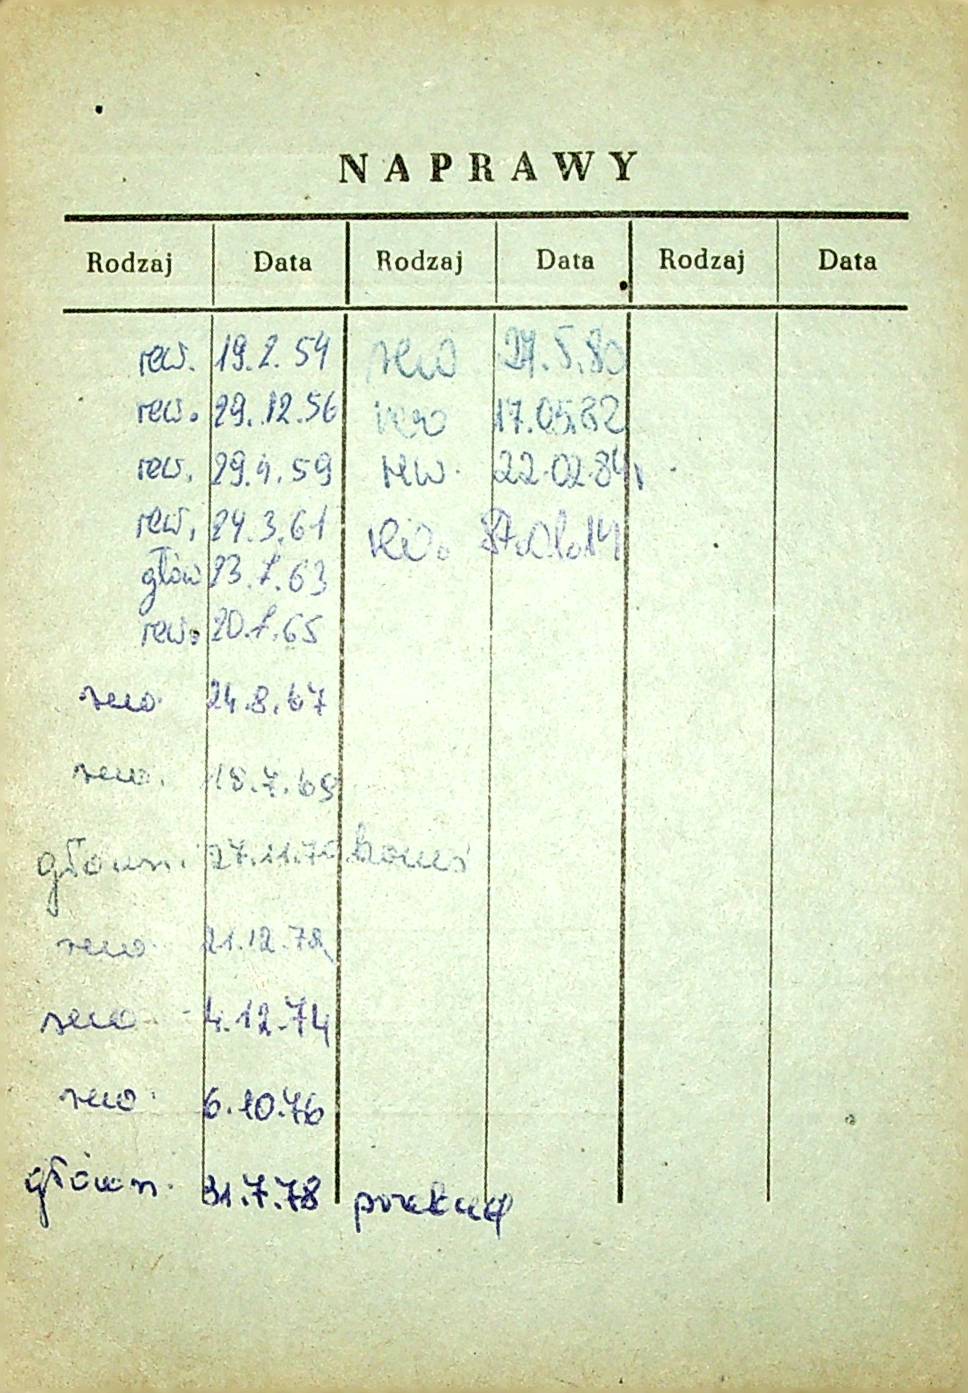 NAPRAWY
Rodzaj Data Rodzaj Data Rodzaj Data
rew. 19.2.54 rew 27.5.80
rew. 29.12.56 rew 17.05.82
rew. 29.4.59 rew. 22.02.84
rew. 24.3.61 rew.
głów 23.7.63
rew. 20.7.65
rew. 24.8.67
rew. 18.7.69
główn. 27.11.70
rew. 21.12.72
rew. 4.12.74
rew. 6.10.76
główn. 31.7.78